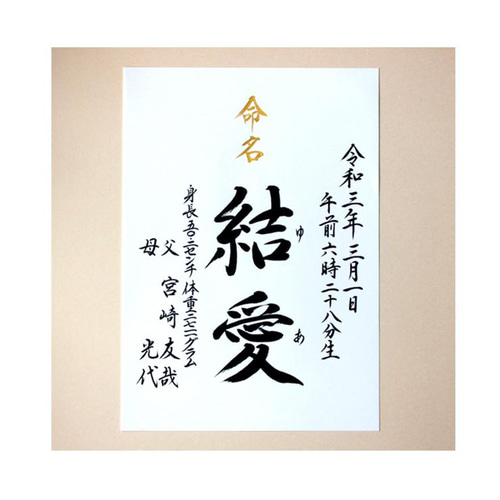 令和三年 三月一日
午前六時二十八分生
命名
結愛
ゆ あ
身長 センチ 体重 グラム
父 宮崎 友哉
母 光代